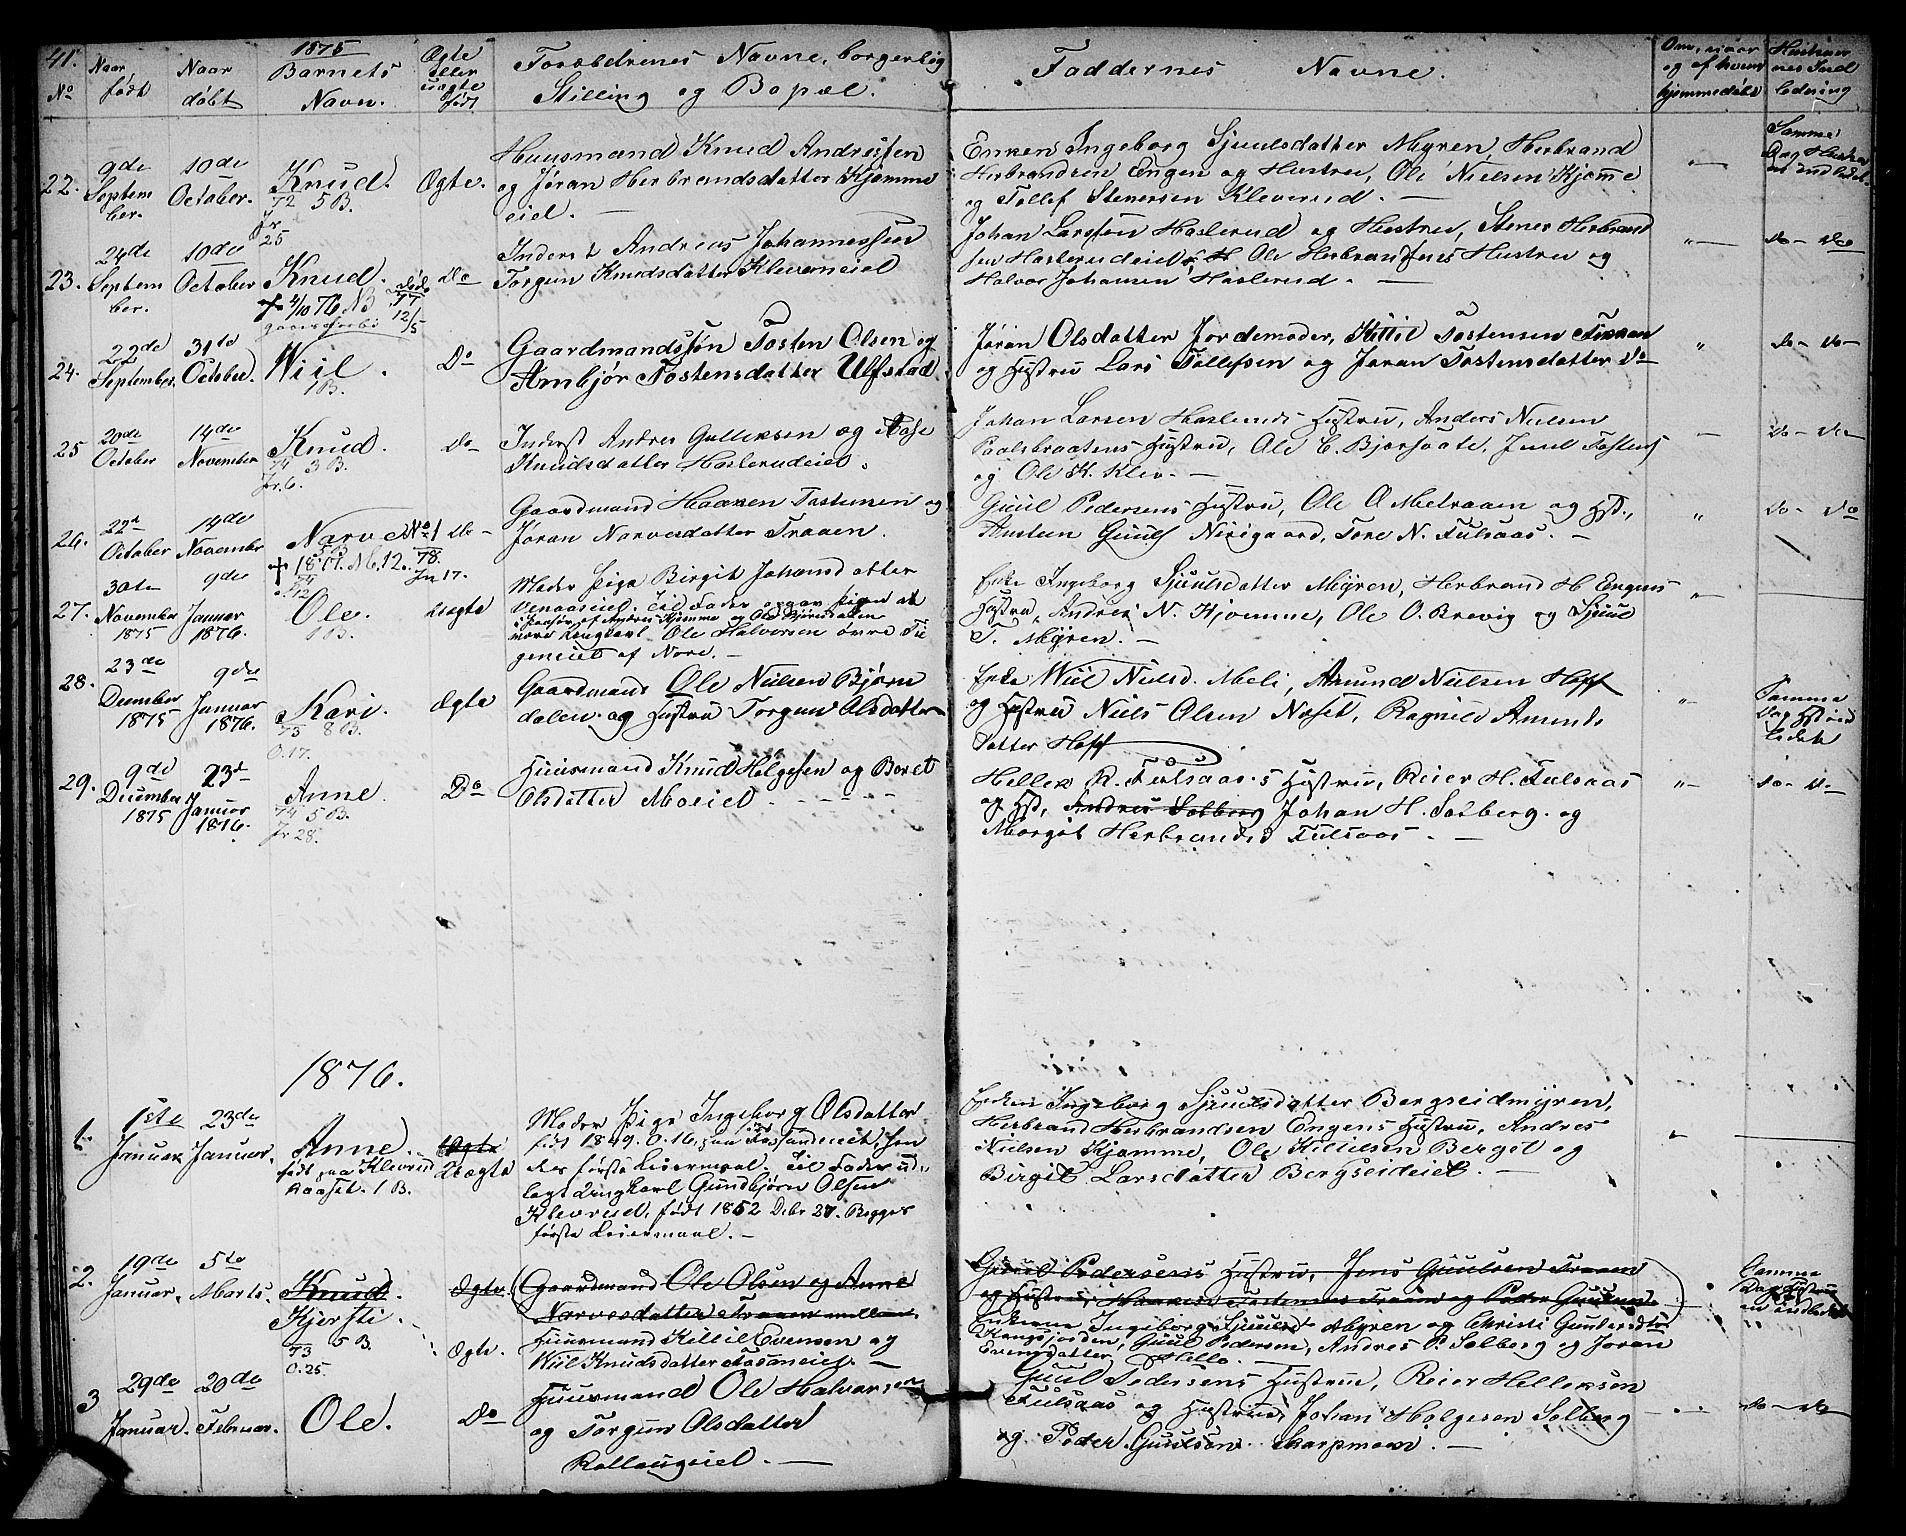 41.
1875
No
Naar født
Naar døbt
Barnets Navn.
Ægte eller uægte født
Forældrenes Navne, borgerlig Stilling og Bopæl.
Faddernes Navne.
Om, naar og af hvem hjemmedøbt
Hustruernes Indledning
22.
9de September.
10de October.
Knud.
72 5 B.
Jr. 25
Ægte.
Huusmand Knud Andressen
og Jøran Herbrandsdatter Kjømme
eiet. —
Enken Ingeborg Sjuulsdatter Myren, Herbrand
Herbrandsen Engen og Hustru, Ole Nielsen Kjøme
og Tollef Stenersen Kleverud. —
Samme Dag Hustruen indledet.
23.
24de September.
10de October
Knud.
Do
Inderst Andreas Johannessen
Torgun Knudsdatter Kleveneiet
Johan Larssen Haslerud og Hustru, Stener Herbrand
sen Haslerudeiet, Ole Herbrandsens Hustru og
Halvor Johansen Haslerud. —
Do — Do
24.
22de September.
31te October.
Wiil.
1 B.
Do
Gaardmandssøn Tosten Olsen og
Arnbjør Tostensdatter Ulfstad.
Jøran Olsdatter Jordemoder, Kittil Tostensen Traaen
og Hustru Lars Tollefsen og Jøran Tostensdatter Do
Do — Do —
25
20de October
14de November
Knud.
74 3 B.
Jr. 6.
Do
Inderst Andres Gulleksen og Aase
Knudsdatter Haslerudeiet.
Johan Larsen Hasleruds Hustru, Anders Nielsen
Paalsbraatens Hustru, Ole C. Bjørsaate, Juul Tostens
og Ole K. Klev. —
Do — Do —
26.
22de October
14de November
Narve
5 B.
No 1
78.
Jr 17.
Do —
Gaardmand Haaken Tostensen og
Jøran Narvesdatter Traaen.
Guul Pedersens Hustru, Ole O Melraam og Hst.,
Austen Guuls Nirigaard, Tore N. Fulsaas. —
Do — Do
27.
30te November 1875
9de Januar 1876.
Ole.
1 B.
Uægte
Moder Pige Birgit Johansdatter
Venaaseiet. Til Fader opgav Pigen at
være Ungkarl Ole Halvorsen øvre Tu
geneiet af Nore. —
Enke Ingeborg Sjuulsdatter Myren, Herbrand H. Engens
Hustru, Andres N. Kjømme, Ole O. Brevig og Sjuul
T. Myren. —
28.
23de December 1875
9de Januar 1876.
Kari.
73 8 B.
O. 17.
Ægte
Gaardmand Ole Nielsen Bjørn
dalen og Hustru Torgun Olsdatter
Enke Wiil Nielsd. Meli, Amund Nielsen Hoff
og Hustru Niels Olsen Noset, Ragnild Amunds
datter Hoff
Samme Dag Hst. ind ledet
29.
9de December 1875
23de Januar 1876.
Anne.
74 5 B.
Jr 28.
Do
Huusmand Knud Helgesen og Boret
Olsdatter Moeiet.
Hellek R. Fulsaas's Hustru, Reier H. Fulsaas
og Hst, Andres Solberg Johan H. Solberg. og
Margit Herbrandsd Fulsaas. —
Do — Do —
1876.
1.
1ste Januar
23de Januar.
Anne.
født paa Klevrud
1 B.
Ægte
Uægte
Moder Pige Ingeborg Olsdatter
født 1849. O. 16, paa Fossandeiet, hen
des første Leiermaal. Til Fader ud,
lagt Ungkarl Gundbjørn Olsen
Klevrud, født 1852 Debr 27. Begges
første Leiermaal. —
Enken Ingeborg Sjuulsdatter Bergseidmyren,
Herbrand Herbrandsen Engens Hustru, Andres
Nielsen Kjømme, Ole Kittilsen Berget og
Birgit Larsdatter Bergseideiet. —
2.
19de Januar.
5te Marts.
Knud.
Kjersti
73 5 B.
O. 25.
Ægte
Ægte.
Gaardmand Ole Olsen og Anne
Narvesdatter Traaen mellem.
Huusmand Kittil Evensen og
Wiil Knudsdatter Fosaneiet. —
Guul Pedersens Hustru, Jens Guulsen Traaen
og Hustru, Haaken Tostensen Traaen og Peder Guulsen
Enkerne Ingeborg Sjuulsd Myren og Christi Gundersdtr
Kongsjorden, Guul Pedersen, Andres P. Solberg og Jøran
Evensdatter Hello. —
Samme Dag Hustruen indledet
3
29de Januar.
20de Februar.
Ole.
Do
Huusmand Ole Halvorsen
og Torgun Olsdatter
Rollaugeiet. —
Guul Pedersens Hustru, Reier Helleksen
Fulsaas og Hustru, Johan Helgesen Solberg
og Peder Guulsen Skarpmoen. —
Do — Do